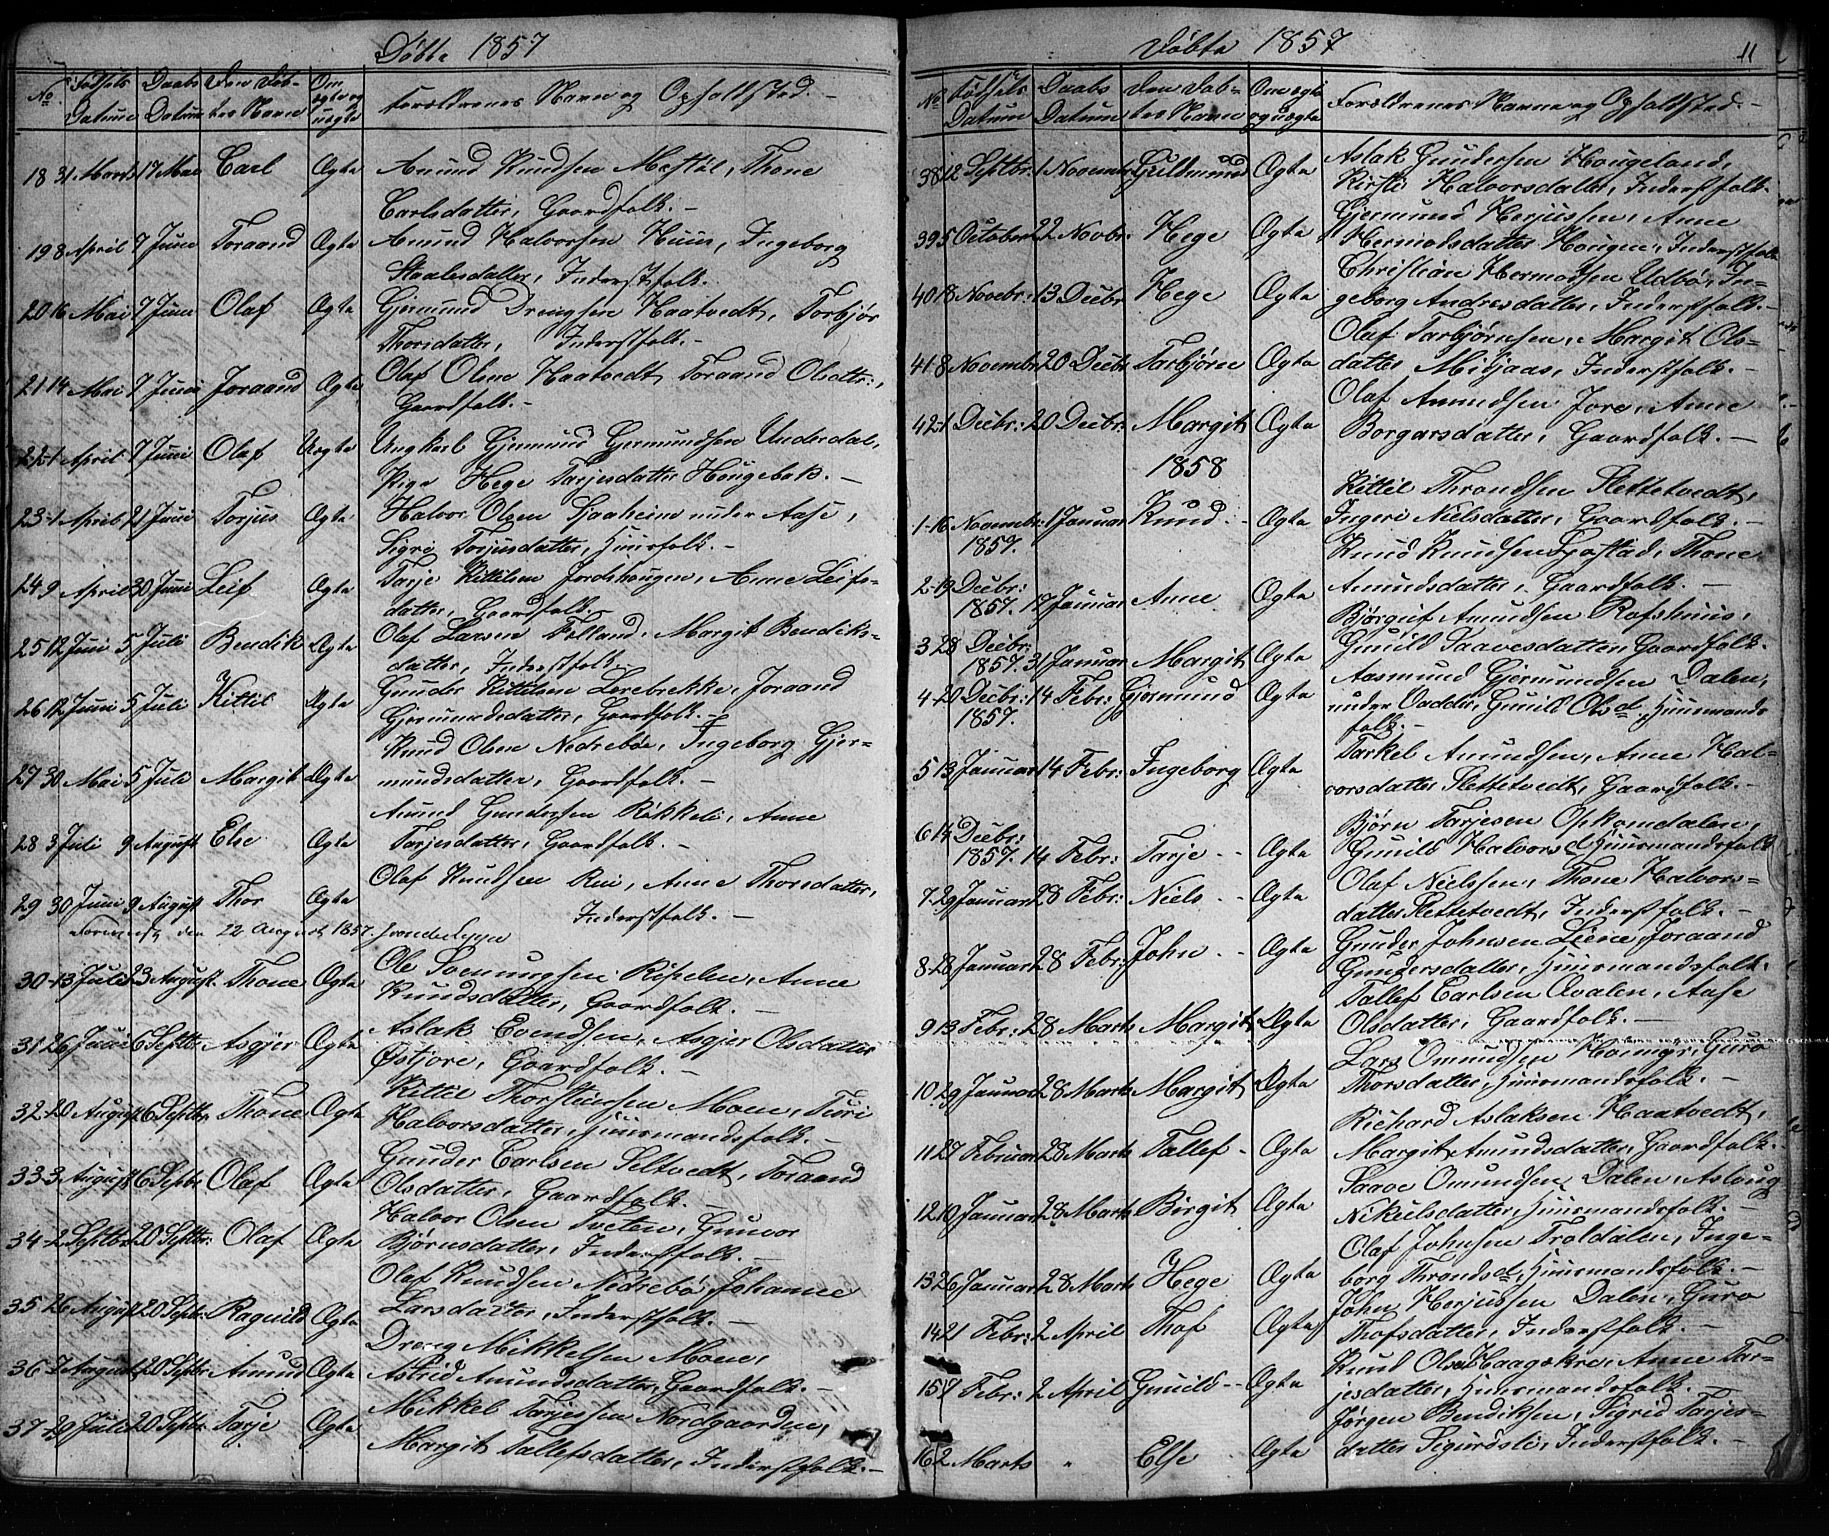 Døbte 1857
No Fødsels Datum Daabs Datum Den Døbtes Navn Om ægte og uægte Forældrenes Navn og Opholdsted. –
18 31 Marts 17 Mai Carl Ægte Amund Knudsen Mæstøl, Thone
Carlsdatter, Gaardfolk. –
19 8 April 7 Juni Toraand Ægte Amund Halvorsen Huus, Ingeborg
Staalesdatter, Inderstfolk.
20 16 Mai 7 Juni Olaf Ægte Gjermund Drengsen Haatvedt, Torbjør
Thorsdatter, Inderstfolk. –
21 14 Mai 7 Juni Joraand Ægte Olaf Olsen Haatvedt, Toraand Olsdttr:,
Gaardfolk. –
22 1 April 7 Juni Olaf Uægte Ungkarl Gjermund Germundsen Underdal,
Pige Hege Tarjesdatter Hougebak. –
23 1 April 21 Juni Torjus Ægte Halvor Olsen Tjaaheim under Aase,
Sigri Torjusdatter, Huusfolk. –
24 9 April 30 Juni Leif Ægte Tarje Kittilsen Jordshougen, Anne Leifs-
datter, Gaardfolk. –
25 12 Juni 5 Juli Bendik Ægte Olaf Larsen Følland, Margit Bendiks-
datter, Inderstfolk.
26 12 Juni 5 Juli Kittil Ægte Gunder Kittelsen Lerebrekke, Joraand
Gjermundsdatter, Gaardfolk. –
27 30 Mai 5 Juli Margit Ægte Knud Olsen Nedrebøe, Ingeborg Gjer-
mundsdatter, Gaardfolk. –
28 3 Juli 9 August Else Ægte Amund Gundersen Rikkeli, Anne
Tarjesdatter, Gaardfolk. –
29 30 Juni 9 August Thor Ægte Olaf Knudsen Rui, Anne Thorsdatter,
Inderstfolk. –
den 22 August 1857.
30 13 Juli 23 August Thone Ægte Ole Sveinungsen Rispelen, Anne
Knudsdatter, Gaardfolk. –
31 26 Juni 6 Septbr. Asgjer Ægte Aslak Evendsen, Asgjer Olsdatter
Østjore, Gaardfolk. –
32 20 August 6 Septbr. Thone Ægte Kittil Thorsteinsen Moen, Turi
Halvorsdatter, Huusmandsfolk. –
33 3 August 6 Septbr. Olaf Ægte Gunder Carlsen Seltvedt, Toraand
Olsdatter, Gaardfolk.
34 2 Septbr. 20 Septbr: Olaf Ægte Halvor Olsen Tveten, Gunvor
Bjørnsdatter, Inderstfolk. –
35 26 August 20 Septbr: Ragnild Ægte Olaf Knudsen Nedrebø, Johanne
Larsdatter, Inderstfolk. –
36 7 August 20 Septbr: Amund Ægte Dreng Mikkelsen Moene,
Astrid Amundsdatter, Gaardfolk. –
37 29 Juli 20 Septbr Tarje Ægte Mikkel Tarjesen Nordgaarden,
Margit Tallefsdatter, Inderstfolk. –
Døbte 1857
11
No Fødsels Datum Daabs Datum Den Døbtes Navn Om ægte og uægte Forældrenes Navn og Opholdsted. –
38 12 Septbr: 1 Novembr Guldmund Ægte Aslak Gundersen Hougeland,
Kirsti Halvorsdatter, Inderstfolk.
39 5 October 22 Novbr: Hege Ægte Gjermund Herjussen, Anne
Hermodsdatter Hougen, Inderstfolk
40 18 Novebr: 13 Decbr Hege Ægte Christian Hermodsen Udbø, In-
geborg Andresdatter, Inderstfolk. –
41 8 Novembr 20 Decbr Tarbjørn Ægte Olaf Tarbjørnsen, Margit Ols-
datter Mitjaas, Inderstfolk. –
42 1 Decbr: 20 Decbr: Margit Ægte Olaf Amundsen Jore, Anne
Borgarsdatter, Gaardfolk. –
1858
1 16 Novembr: 1857. 1 Januar Knud Ægte Kittil Throndsen Slettetvedt,
Ingeri Nielsdatter, Gaardfolk. –
2 19 Decbr: 1857. 17 Januar Anne Ægte Knud Knudsen Sjostad, Thone
Amundsdatter, Gaardfolk. –
3 28 Decbr: 1857. 31 Januar Margit Ægte Bjørguf Amundsen Rofshuus,
Gunild Saavesdatter, Gaardfolk.
4 20 Decbr: 1857. 14 Febr: Gjermund Ægte Aasmund Gjermundsen Dalen,
under Vadder, Gunild Olsd. Huusmands-
folk. –
5 13 Januar 14 Febr: Ingeborg Ægte Tarkel Amundsen, Anne Hal-
vorsdatter Slettetvedt, Gaardfolk. –
6 14 Decbr: 1857. 14 Febr: Tarje Ægte Bjørn Tarjesen Opkomdalen,
Gunild Halvorsd, Huusmandsfolk
7 29 Januar 28 Febr: Niels Ægte Olaf Nielsen, Thone Halvors-
datter Slettetvedt, Inderstfolk. –
8 28 Januar 28 Febr: John Ægte Gunder Johnsen Liene, Joraand
Gundersdatter, Huusmandsfolk.
9 13 Febr: 28 Marts Margit Ægte Tallef Carlsen Qvalen, Aase
Olsdatter, Gaardfolk. –
10 29 Januar 28 Marts Margit Ægte Lars Omundsen Hoimyr, Guro
Thorsdatter, Huusmandsfolk. –
11 27 Februar 28 Marts Tallef Ægte Richard Aslaksen Haatvedt,
Margit Amundsdatter, Gaardfolk.
12 10 Januar 28 Marts Birgit Ægte Saave Omundsen Dalen, Aslaug
Nikulsdatter, Huusmandsfolk. –
13 26 Januar 28 Marts Hege Ægte Olaf Johnsen Troldalen, Inge-
borg Throndsd, Huusmandsfolk. –
14 21 Febr: 2 April Thof Ægte John Herjussen Dalen, Guro
Thofsdatter, Inderstfolk. –
15 7 Febr: 2 April Gunild Ægte Knud Olsen Haagakre, Anne Tar-
jesdatter, Huusmandsfolk. –
16 2 Marts " Else Ægte Jørgen Bendiksen, Sigrid Tarjes-
datter Sigurdsli, Inderstfolk. –